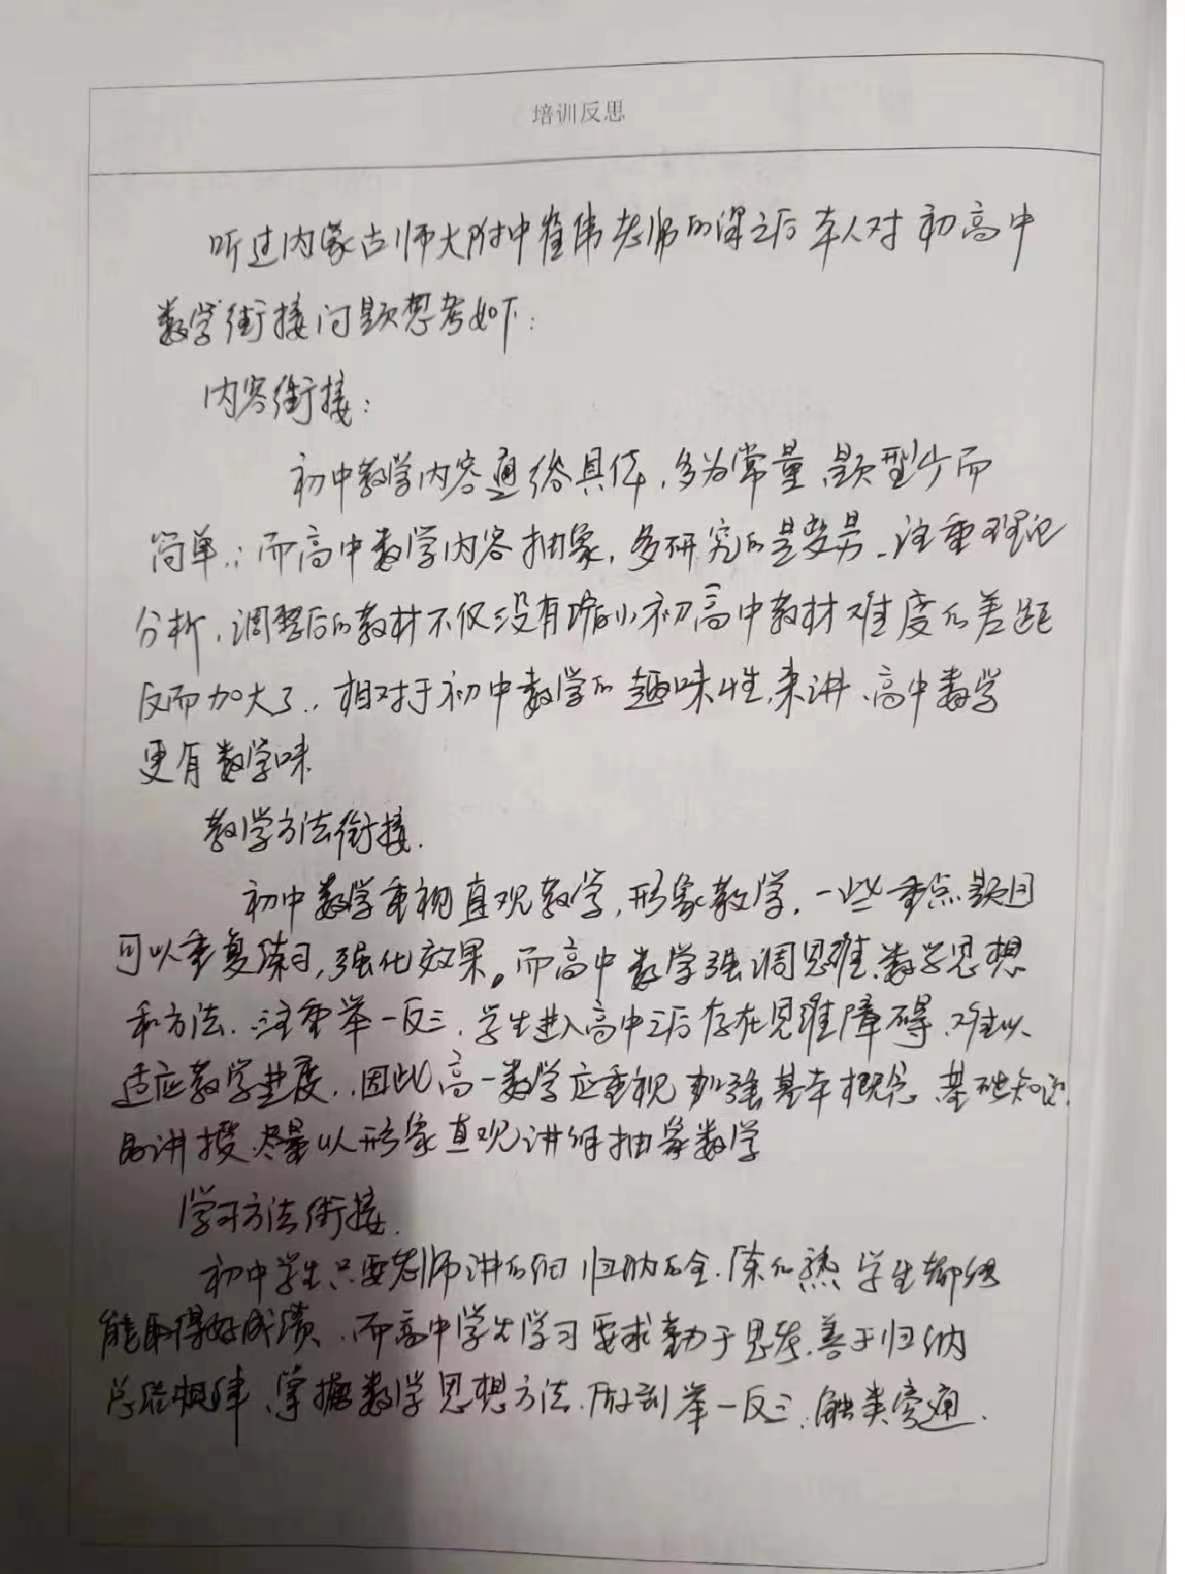 培训反思
听过内蒙古师大附中崔伟老师的课之后本人对初高中
数学衔接问题思考如下:
内容衔接:
初中数学内容通俗具体,多为常量,题型少而
简单;而高中数学内容抽象,多研究的是变量、注重理论
分析,调整后的教材不仅没有缩小初高中教材难度的差距
反而加大了,相对于初中数学的趣味性来讲、高中数学
更有数学味
教学方法衔接.
初中数学重视直观教学,形象教学,一些重点题目
可以重复练习,强化效果。而高中数学强调思维、数学思想
和方法.注重举一反三.学生进入高中之后存在思维障碍、难以
适应教学进度.因此高一数学应重视加强基本概念、基础知识
的讲授.尽量以形象直观讲解抽象数学
学习方法衔接.
初中学生只要老师讲的细 归纳的全.练的熟 学生都
能取得好成绩.而高中学生学习要求勤于思考.善于归纳
总结规律、掌握数学思想方法.做到举一反三.触类旁通.